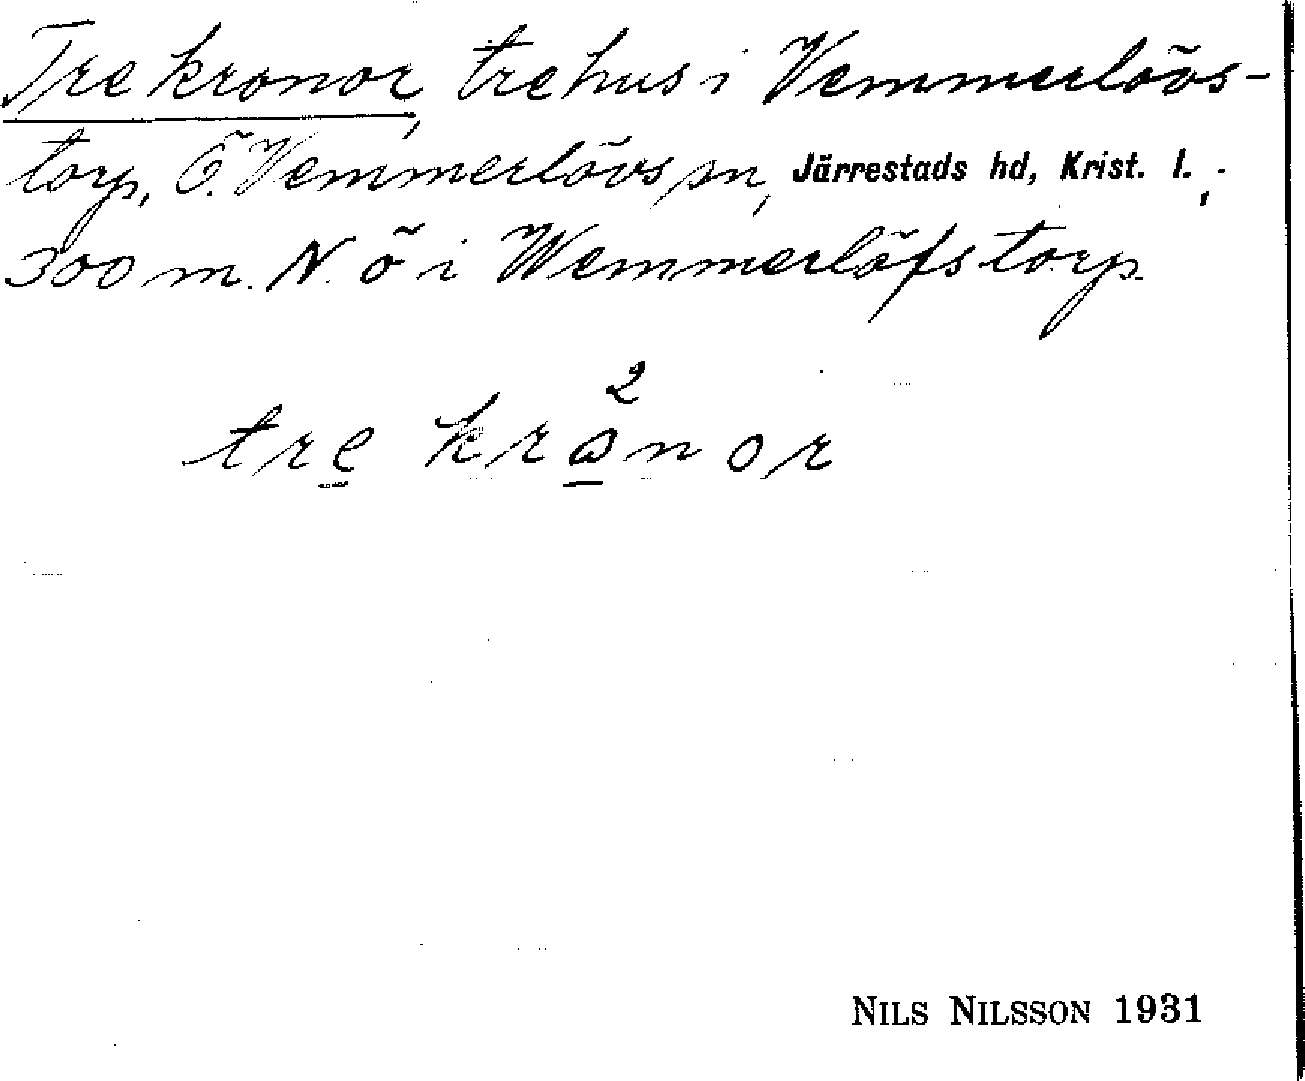 Tre kronor, tre hus i Vemmerlövs-
torp, Ö. Vemmerlövs sn, Järrestads hd, Krist. l.,
300 m. N. ö i Wemmerlöfstorp.
2
tre kronor
NILS NILSSON 1931